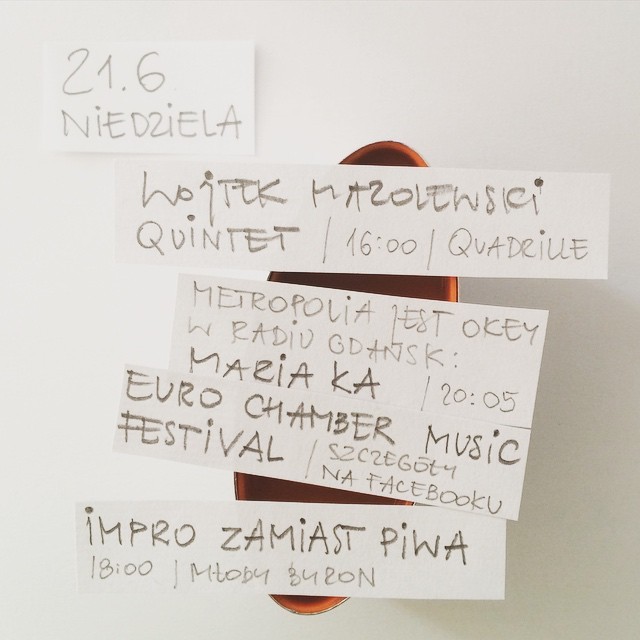 21.6
NIEDZIELA
WOJTEK MAZOLEWSKI
QUINTET | 16:00 | QUADRILLE
METROPOLIA JEST OKEY
W RADIU GDAŃSK:
MARIA KA | 20:05
EURO CHAMBER MUSIC
FESTIVAL | SZCZEGÓŁY
NA FACEBOOKU
IMPRO ZAMIAST PIWA
18:00 | MŁODY BYRON